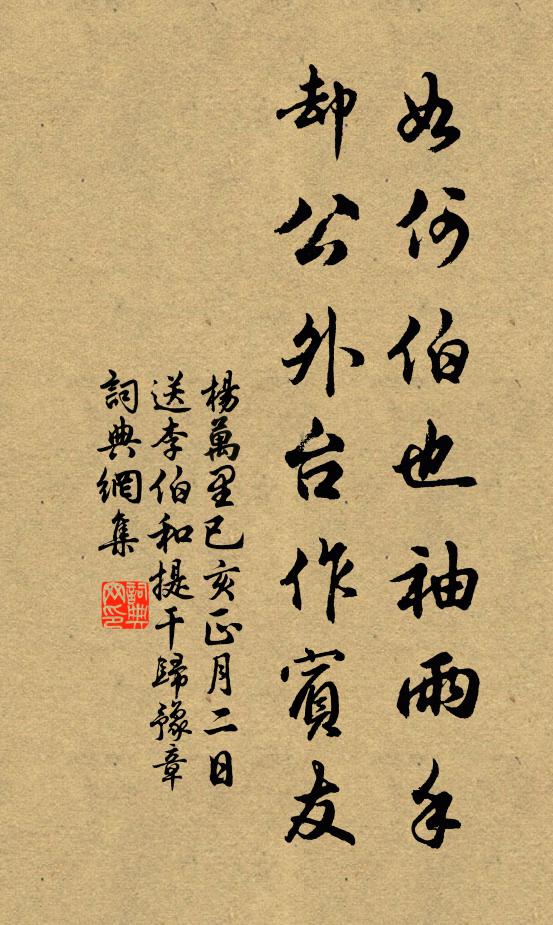 如何伯也袖兩手
却公外台作賓友
楊萬里己亥正月二日
送李伯和提干歸豫章
詞典網集
詞典网印